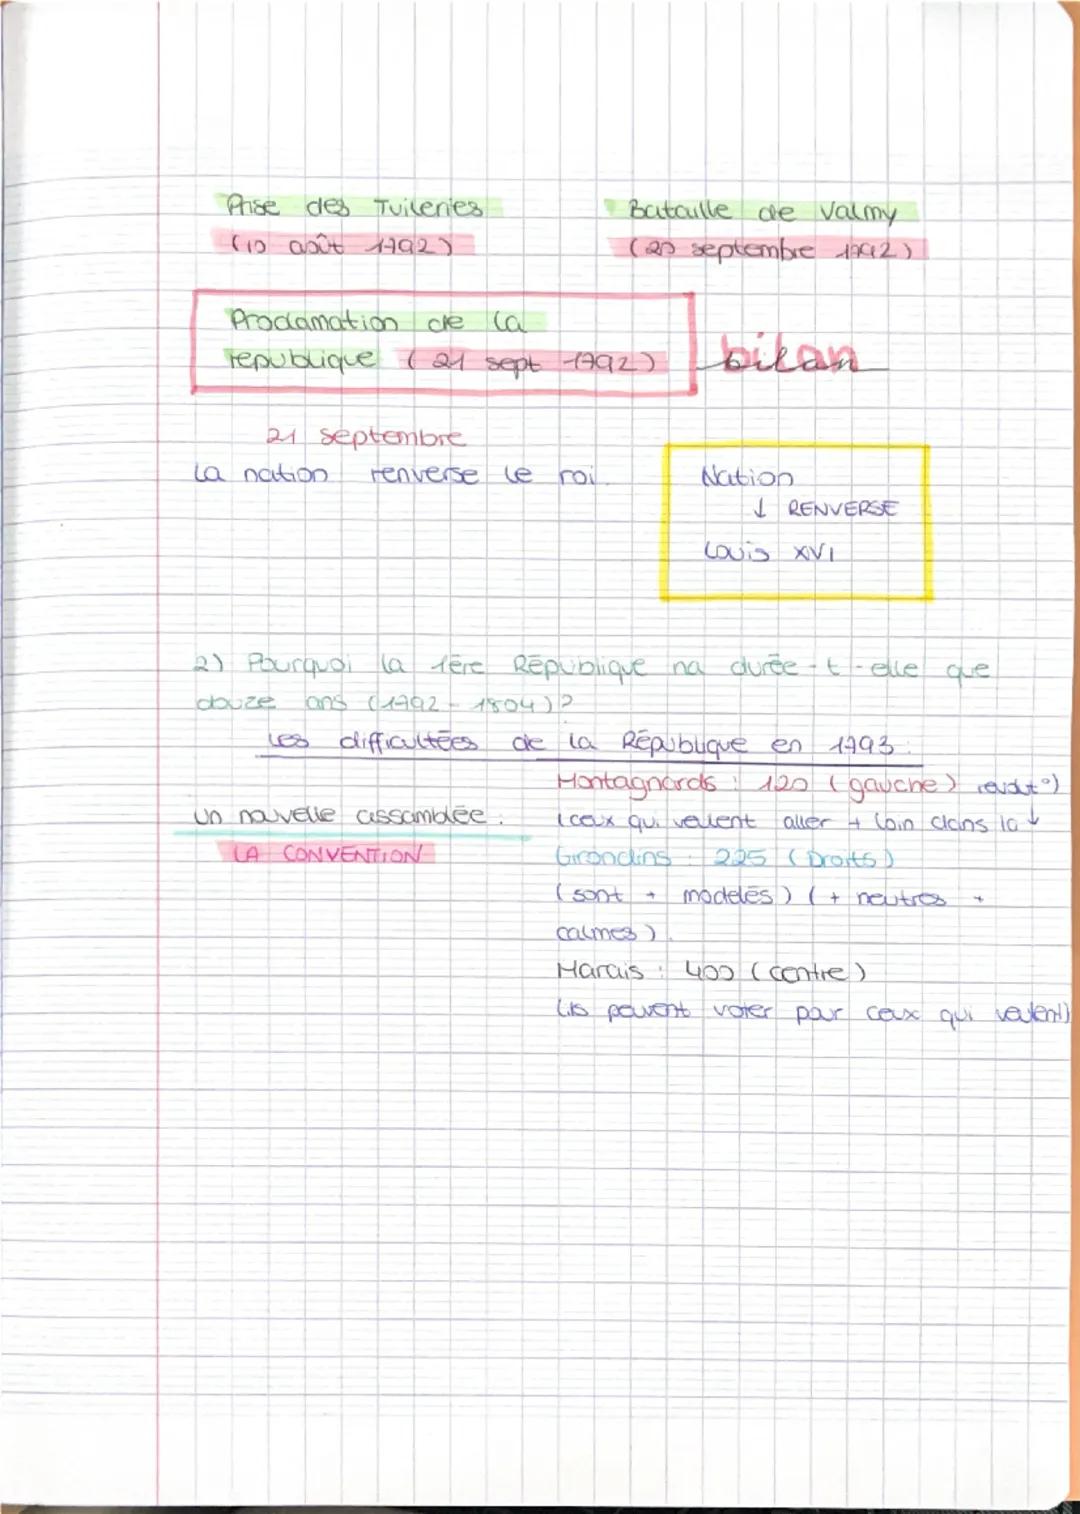 Prise des Tuileries
(10 août 1792)
Bataille de Valmy
(20 septembre 1792)
Proclamation de la
republique (21 sept 1792)
bilan
21 septembre
La nation renverse le roi.
Nation
↓ RENVERSE
Louis XVI
2) Pourquoi la 1ère République na durée-t-elle que
douze ans (1792-1804)?
Les difficultées de la République en 1793 :
Un nouvelle assamblée :
LA CONVENTION
Montagnards : 120 (gauche) révolut°)
(ceux qui veulent aller + loin dans la ↓
Girondins : 225 (Droits)
(sont + modelés) (+ neutres +
calmes).
Marais : 400 (centre)
(ils peuvent voter pour ceux qui veulent)